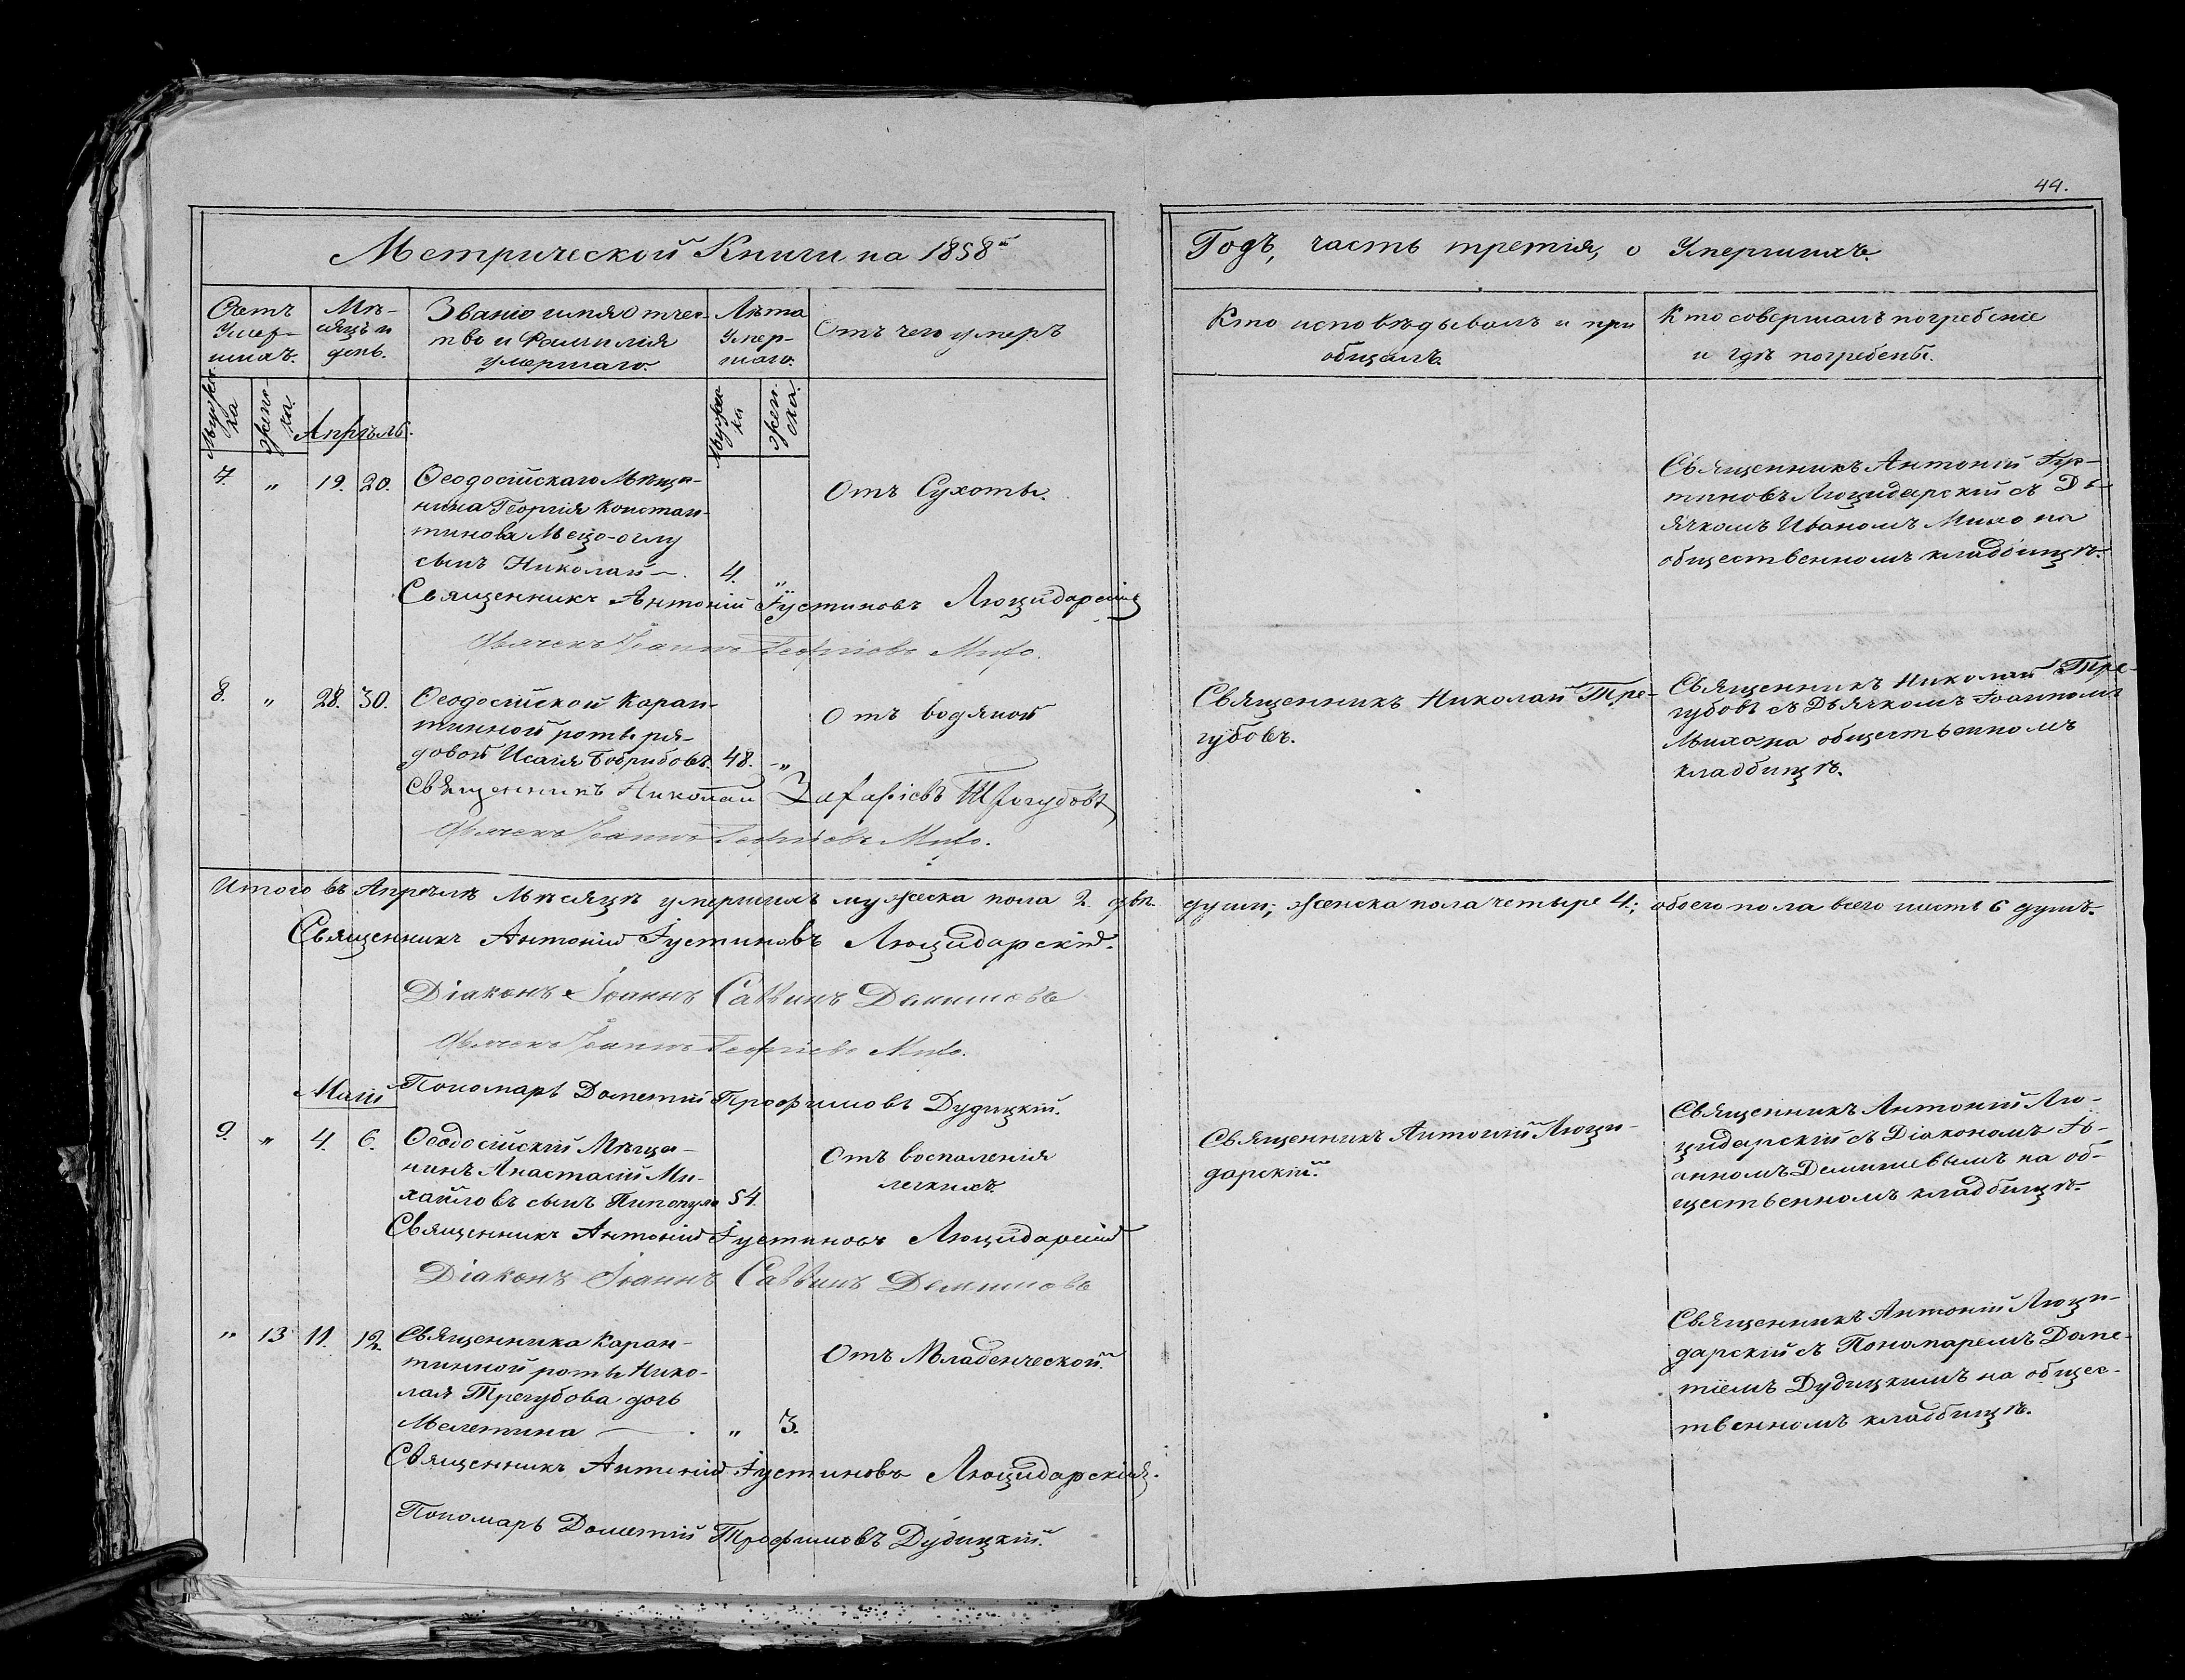 44.
Метрической Книги на 1858й
Годъ, часть третія, о Умершихъ.
Счетъ Умер-шихъ.
Мѣ-сяцъ и день.
Званіе имя отчес-
тво и Фамилія
умершаго.
Лѣта Умер-шаго.
Отъ чего умеръ
Кто исповѣдывалъ и при
общалъ.
Кто совершалъ погребеніе
и гдѣ погребены.
Мужес-ка
женс-ка.
Апрѣль.
Мужес-ка
женс-ка.
7. " 19. 20.
Ѳеодосійскаго Мѣща-
нина Георгія Констан-
тинова Мецо-оглу
сынъ Николай 4. "
Отъ Сухоты.
Священникъ Антоній Іус-
тиновъ Люцидарскій съ Дь-
ячкомъ Иваномъ Михо на
общественномъ кладбищѣ.
Священникъ Антоній Іустиновъ Люцидарскій
Дьячекъ Іоаннъ Георгіевъ Михо.
8. " 28. 30.
Ѳеодосійской Каран-
тинной роты ря-
довой Исаія Бобрибовъ. 48. "
Отъ водяной
Священникъ Николай Тре-
губовъ.
Священникъ Николай Тре-
губовъ съ Дьячкомъ Іоанномъ
Михо на общественномъ
кладбищѣ.
Священникъ Николай Захаріевъ Трегубовъ
Дьячекъ Іоаннъ Георгіевъ Михо.
Итого въ Апрѣлѣ Мѣсяцѣ умершихъ мужеска пола 2 двѣ души; женска пола четыре 4.; обоего пола всего шесть 6 душъ.
Священникъ Антоній Іустиновъ Люцидарскій.
Діаконъ Іоаннъ Саввинъ Демишевъ
Дьячекъ Іоаннъ Георгіевъ Михо.
Пономарь Дометій Трофимовъ Дудицкій.
Маій
9. " 4. 6.
Ѳеодосійскій Мѣща-
нинъ Анастасій Ми-
хайловъ сынъ Пипопуло 54.
Отъ воспаленія
легкихъ.
Священникъ Антоній Люци-
дарскій.
Священникъ Антоній Лю-
цидарскій съ Діакономъ Іо-
анномъ Демишевымъ на об-
щественномъ кладбищѣ.
Священникъ Антоній Іустиновъ Люцидарскій
Діаконъ Іоаннъ Саввинъ Демишевъ
" 13 11. 12.
Священника Каран-
тинной роты Нико-
лая Трегубова дочь
Мелетина " 3.
Отъ Младенческой.
Священникъ Антоній Люци-
дарскій съ Пономаремъ Доме-
тіемъ Дудицкимъ на общес-
твенномъ кладбищѣ.
Священникъ Антоній Іустиновъ Люцидарскій.
Пономарь Дометій Трофимовъ Дудицкій.